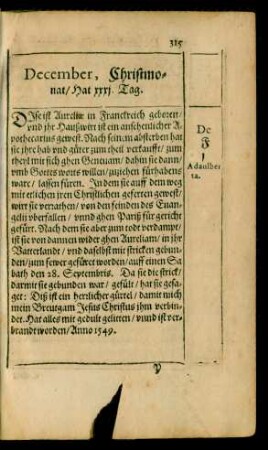 315
December, Christmo-
nat/ Hat xxxj. Tag.
DIse ist Aurelie in Franckreich geboren/
vnd jhr Haußwirt ist ein ansehenlicher A-
pothecarius gewest. Nach seinem absterben hat
sie jhre hab vnd güter zum theil verkaufft/ zum
theyl mit sich ghen Geneuam/ dahin sie dann/
vmb Gottes worts willen/ zuziehen fürhabens
war/ lassen füren. In dem sie auff dem weg
mit etlichen jren Christlichen geferten gewest/
wirt sie verrathen/ von den feinden des Euan-
gelii vberfallen/ vnnd ghen Pariß für gericht
gefürt. Nach dem sie aber zum todt verdampt/
ist sie von dannen wider ghen Aureliam/ in jhr
Vatterlandt/ vnd daselbst mit stricken gebun-
den/ zum fewer gefüret worden/ auff einen Sa-
bath den 28. Septembris. Da sie die strick/
darmit sie gebunden war/ gefült/ hat sie gesa-
get: Diß ist ein herrlicher gürtel/ damit mich
mein Breutgam Jesus Christus jhm verbin-
det. Hat alles mit gedult gelitten/ vnnd ist ver-
brandt worden/ Anno 1549.
De
F
1
Adaulber
ta.